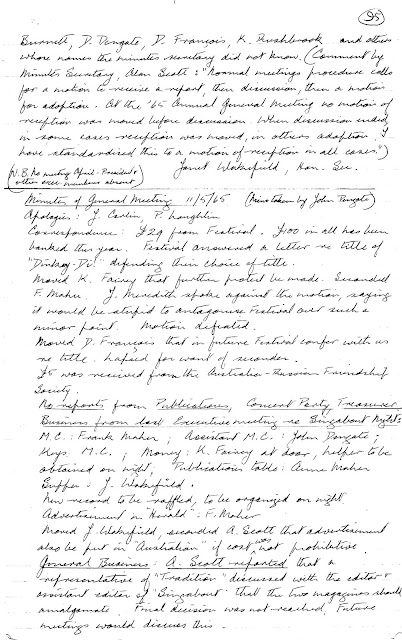 95
Burnett, D. Dengate, D. François, K. Rushbrook and others
whose names the minutes secretary did not know. (Comment by
Minutes Secretary, Alan Scott: "Normal meetings procedure calls
for a motion to receive a report, then discussion, then a motion
for adoption. At the '65 Annual General Meeting no motion of
reception was moved before discussion. When discussion ended,
in some cases reception was moved, in others adoption. I
have standardised this to a motion of reception in all cases.")
Janet Wakefield, Hon. Sec.
N.B. No meeting April - President &
other exec. members absent
Minutes of General Meeting 11/5/65 (Mins taken by John Dengate)
Apologies: J. Carlin, P. Loughlin
Correspondence: £29 from Festival. £100 in all has been
banked this year. Festival answered a letter re title of
"Dinkey-Di" defending their choice of title.
Moved K. Fairey that further protest be made. Seconded
F. Maher. J. Meredith spoke against the motion, saying
it would be stupid to antagonise Festival over such a
minor point. Motion defeated.
Moved D. François that in future Festival confer with us
re title. Lapsed for want of seconder.
£5 was received from the Australian-Russian Friendship
Society.
No reports from Publications, Concert Party, Treasurer.
Business from last Executive meeting re Singabout Nights
M.C.: Frank Maher; Assistant M.C.: John Dengate;
Keys, M.C.; Money: K. Fairey at door, helper to be
obtained on night; Publications table: Anne Maher
Supper: J. Wakefield.
New record to be raffled, to be organized on night
Advertisement in "Herald": F. Maher
Moved J. Wakefield, seconded A. Scott that advertisement
also be put in "Australian" if cost was not prohibitive.
General Business: A. Scott reported that a
representative of "Tradition" discussed with the editor &
assistant editor of "Singabout" that the two magazines should
amalgamate. Final decision was not reached. Future
meetings would discuss this.